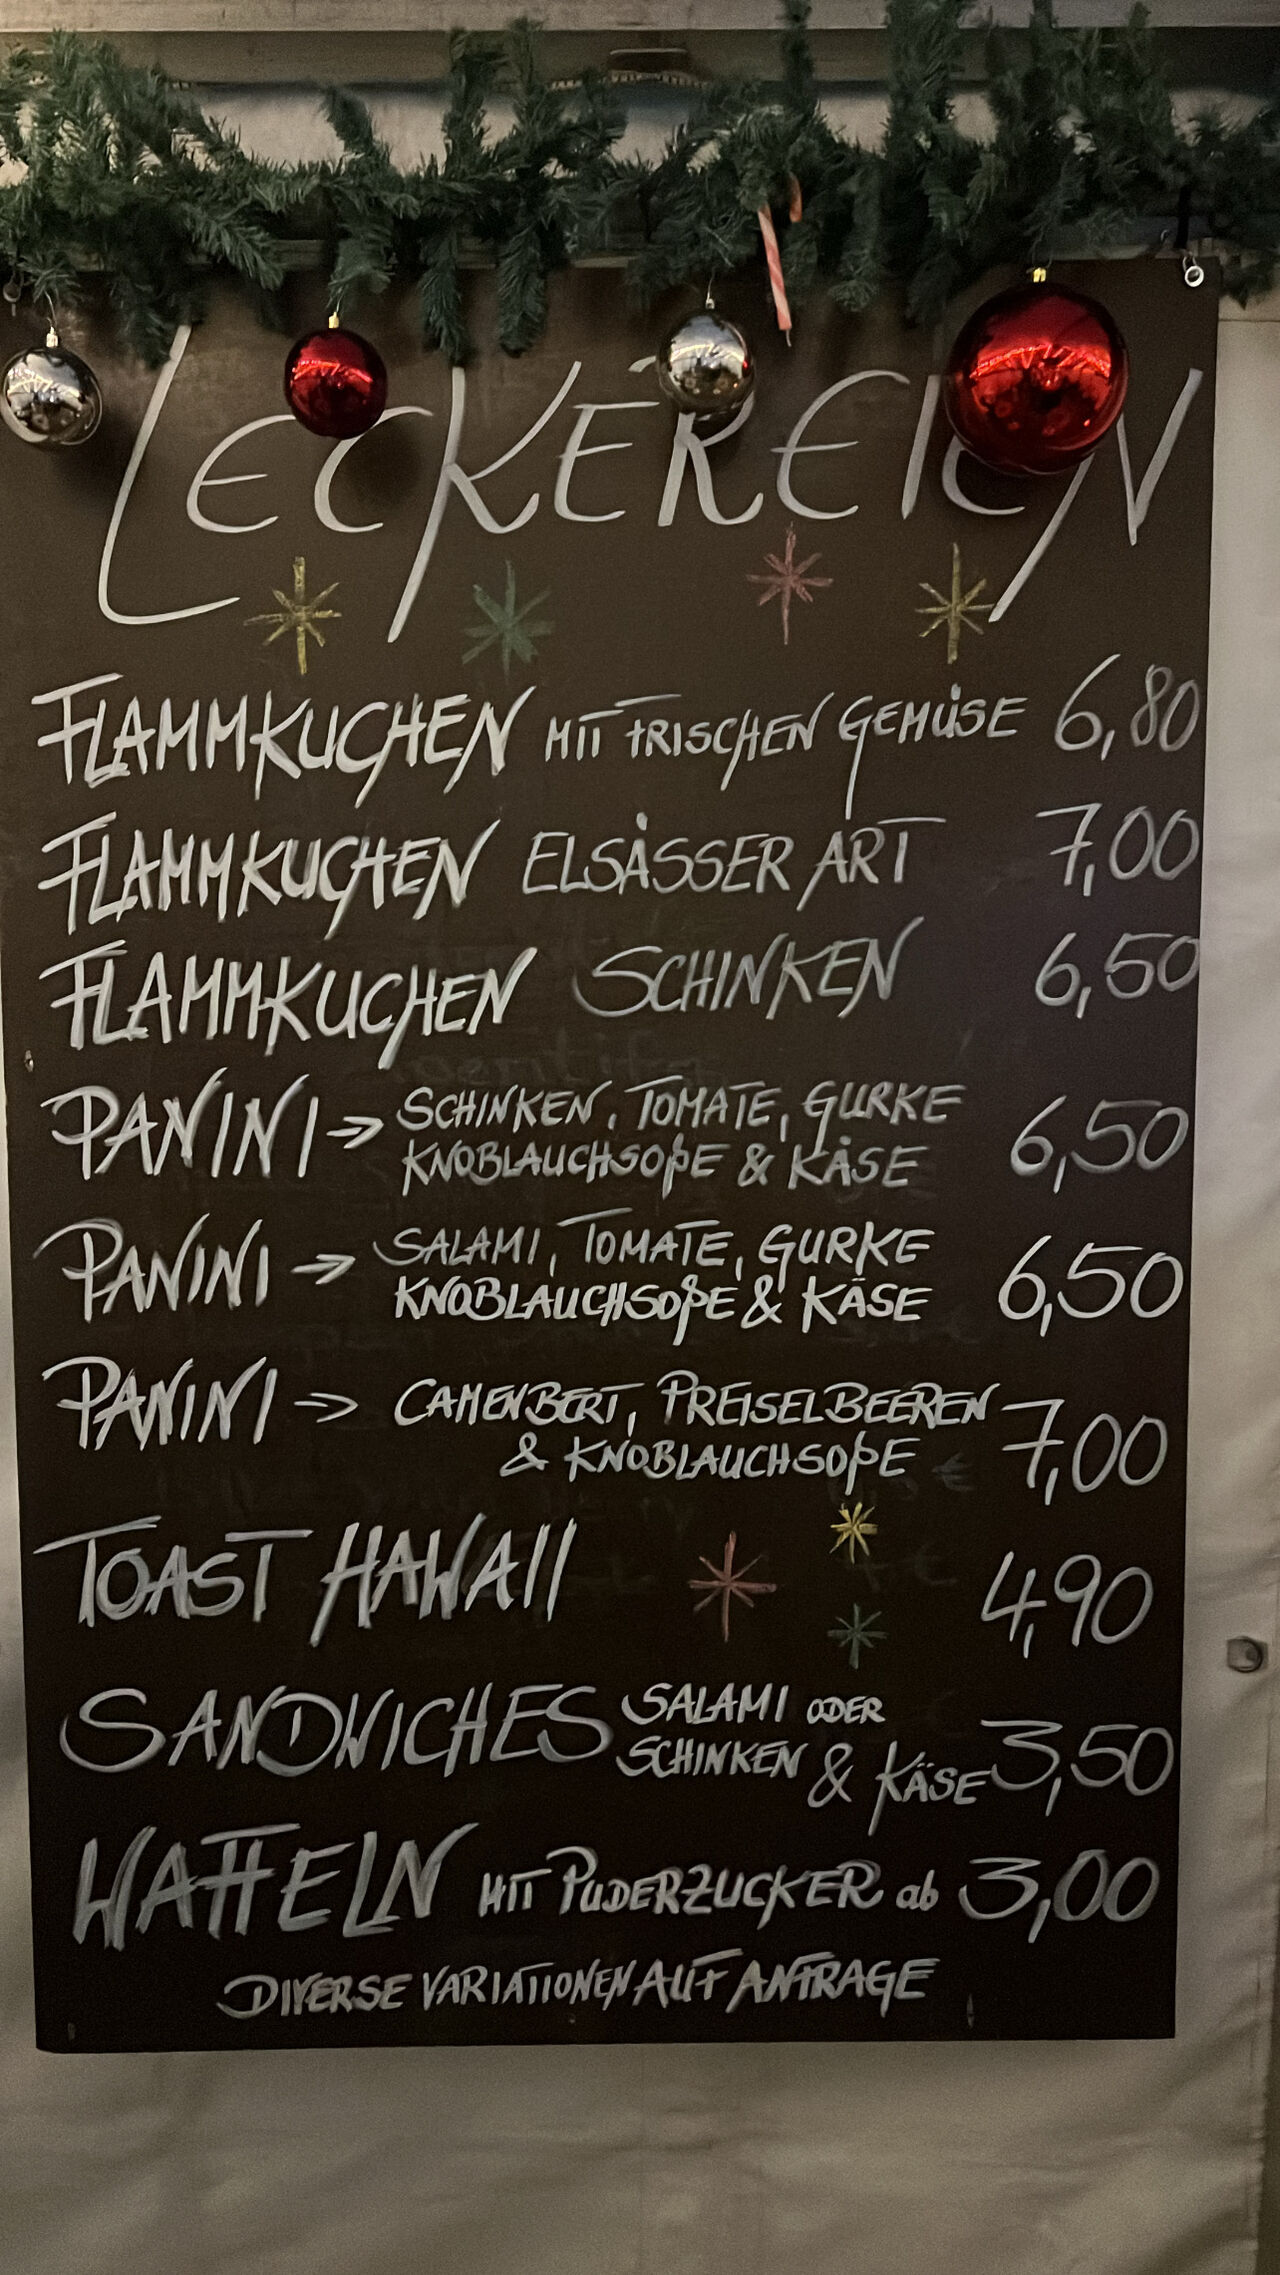 LECKEREIEN
FLAMMKUCHEN MIT FRISCHEN GEMÜSE 6,80
FLAMMKUCHEN ELSÄSSER ART 7,00
FLAMMKUCHEN SCHINKEN 6,50
PANINI → SCHINKEN, TOMATE, GURKE
KNOBLAUCHSOßE & KÄSE 6,50
PANINI → SALAMI, TOMATE, GURKE
KNOBLAUCHSOßE & KÄSE 6,50
PANINI → CAMENBERT, PREISELBEEREN
& KNOBLAUCHSOßE 7,00
TOAST HAWAII 4,90
SANDWICHES SALAMI ODER
SCHINKEN & KÄSE 3,50
WAFFELN MIT PUDERZUCKER ab 3,00
DIVERSE VARIATIONEN AUF ANFRAGE